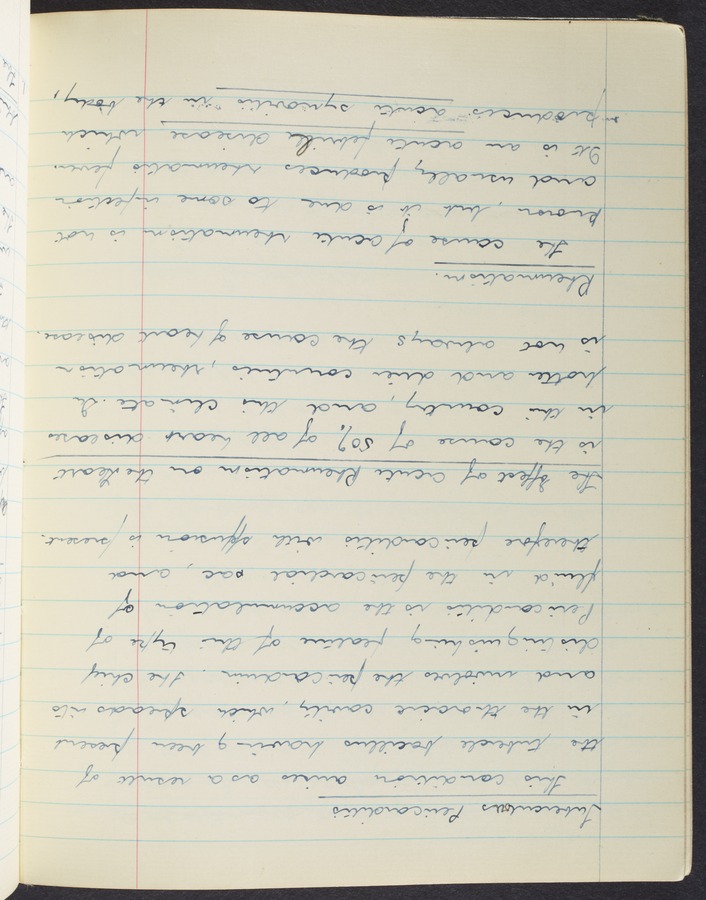 Tuberculous Pericarditis
This condition arises as a result of
the tubercle bacillus having been present
in the thoracic cavity, which spreads into
and involves the pericardium. The chief
distinguishing feature of this type of
Pericarditis is the accumulation of
fluid in the pericardial sac, and
therefore pericarditis with effusion is present.
The Effect of acute Rheumatism on the Heart
is the cause of 50% of all heart diseases
in this country, and this climate. In
hotter and drier countries, rheumatism
is not always the cause of heart disease.
Rheumatism.
The cause of acute rheumatism is not
proven, but it is due to some infection
and usually produces rheumatic fever.
It is an acute febrile disease which
produces acute synovitis in the body,